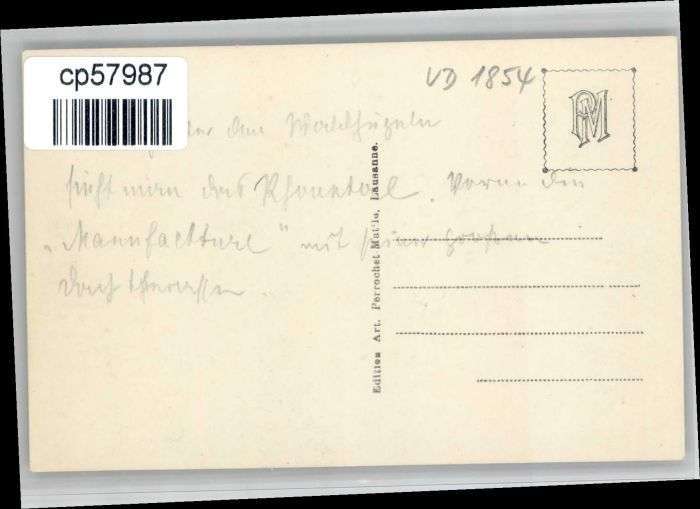 cp57987
VD 1854
PM
den Waldhügeln
sieht man das Rhonetal. Vorne die
„Manufacture" mit seiner großen
Dachterrassen.
Edition Art. Perrochet Matile, Lausanne.